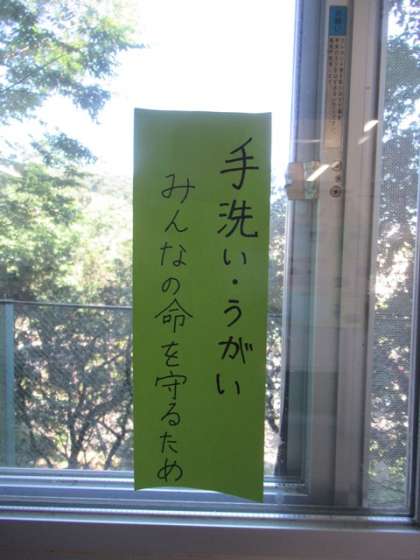 手洗い・うがい
みんなの命を守るため